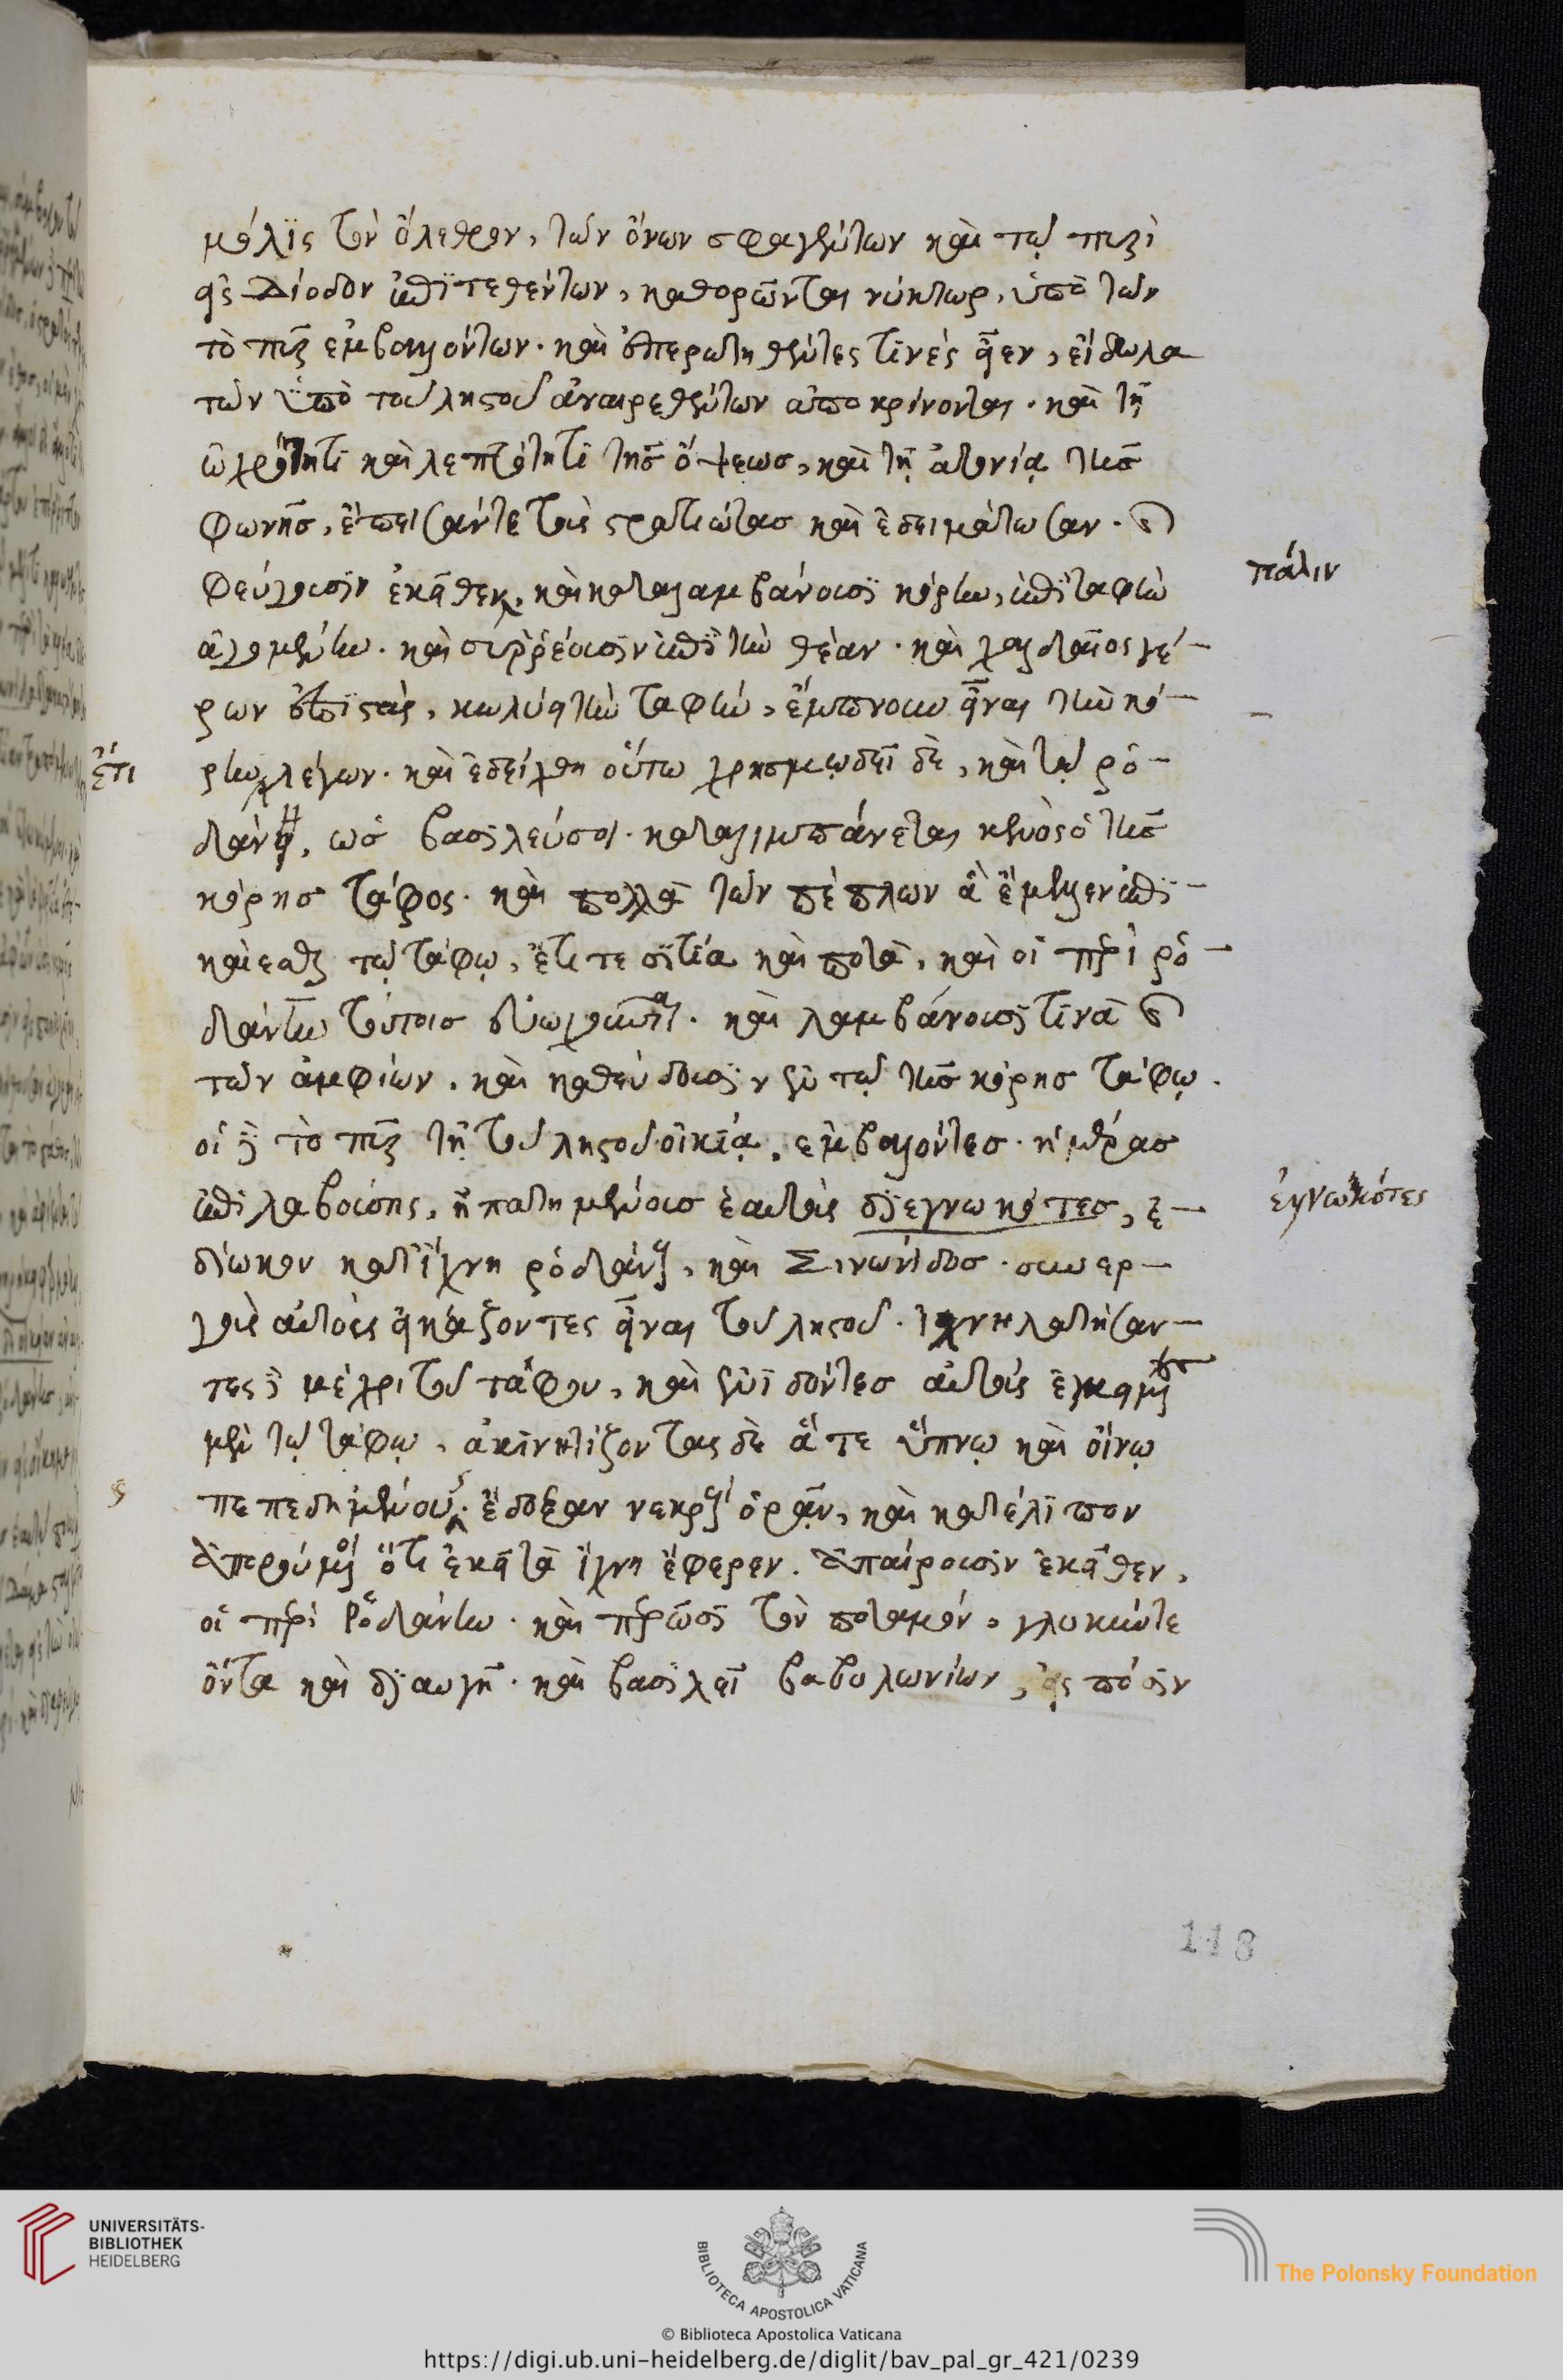 μόλις τὸν ὄλεθρον, τῶν ὄνων σφαγέντων καὶ τῷ πυρὶ
εἰς δίοδον ἐπιτεθέντων, καθορῶνται νύκτωρ, ὑπὸ τῶν
τὸ πῦρ ἐμβαλόντων. καὶ ἐπερωτηθέντες τίνες εἶεν, εἴδωλα
τῶν ὑπὸ τοῦ ληστοῦ ἀναιρεθέντων ἀποκρίνονται. καὶ τῇ
ὠχρότητι καὶ λεπτότητι τῆς ὄψεως, καὶ τῇ ἀτονίᾳ τῆς
φωνῆς, ἔπεισάν τε τοὺς στρατιώτας καὶ ἐδειμάτωσαν. καὶ
φεύγουσιν ἐκεῖθεν, καὶ καταλαμβάνουσι κόρην, ἐπὶ ταφὴν
πάλιν
ἀγομένην. καὶ συρρέουσιν ἐπὶ τὴν θέαν. καὶ χαλδαῖος γέ-
ρων ἐπιστὰς, κωλύει τὴν ταφὴν, ἔμπνουν εἶναι τὴν κό-
ἔτι
ρην λέγων. καὶ ἐδείχθη οὕτω χρησμῳδεῖ δὲ, καὶ τῷ ῥο-
δάνῃ, ὡς βασιλεύσοι. καταλιμπάνεται κενὸς ὁ τῆς
κόρης τάφος. καὶ πολλὰ τῶν πέπλων ἃ ἔμελλεν ἐπι-
καίεσθαι τῷ τάφῳ, ἔτι τε σιτία καὶ ποτὰ, καὶ οἱ περὶ ῥο-
δάνην τούτοις εὐωχοῦνται. καὶ λαμβάνουσι τινὰ καὶ
τῶν ἀμφίων. καὶ καθεύδουσιν ἐν τῷ τῆς κόρης τάφῳ.
οἱ δὲ τὸ πῦρ τῇ τοῦ ληστοῦ οἰκίᾳ, ἐμβαλόντες. ἡμέρας
ἐπιλαβούσης, ἠπατημένους ἑαυτοὺς διεγνωκότες, ἐ-
ἐγνωκότες
δίωκον κατ' ἴχνη ῥοδάνους, καὶ Σινωνίδος. συνερ-
γοὺς αὐτοὺς εἰκάζοντες εἶναι τοῦ ληστοῦ. ἰχνηλατήσαν-
τες δὲ μέχρι τοῦ τάφου, καὶ ἐνιδόντες αὐτοὺς ἐγκειμένους
μὲν τῷ τάφῳ, ἀκινητίζοντας δὲ ἅ τε ὕπνῳ καὶ οἴνῳ
πεπεδημένους. ἔδοξαν νεκροὺς ὁρᾶν, καὶ κατέλιπον
ἀπορούμενοι ὅτι ἐκεῖ τὰ ἴχνη ἔφερεν. ἀπαίρουσιν ἐκεῖθεν,
οἱ περὶ Ῥοδάνην. καὶ περῶσι τὸν ποταμὸν, γλυκύν τε
ὄντα καὶ διαυγῆ. καὶ βασιλεῖ βαβυλωνίων, εἰς πόσιν
118
UNIVERSITÄTS-
BIBLIOTHEK
HEIDELBERG
BIBLIOTECA APOSTOLICA VATICANA
The Polonsky Foundation
© Biblioteca Apostolica Vaticana
https://digi.ub.uni-heidelberg.de/diglit/bav_pal_gr_421/0239